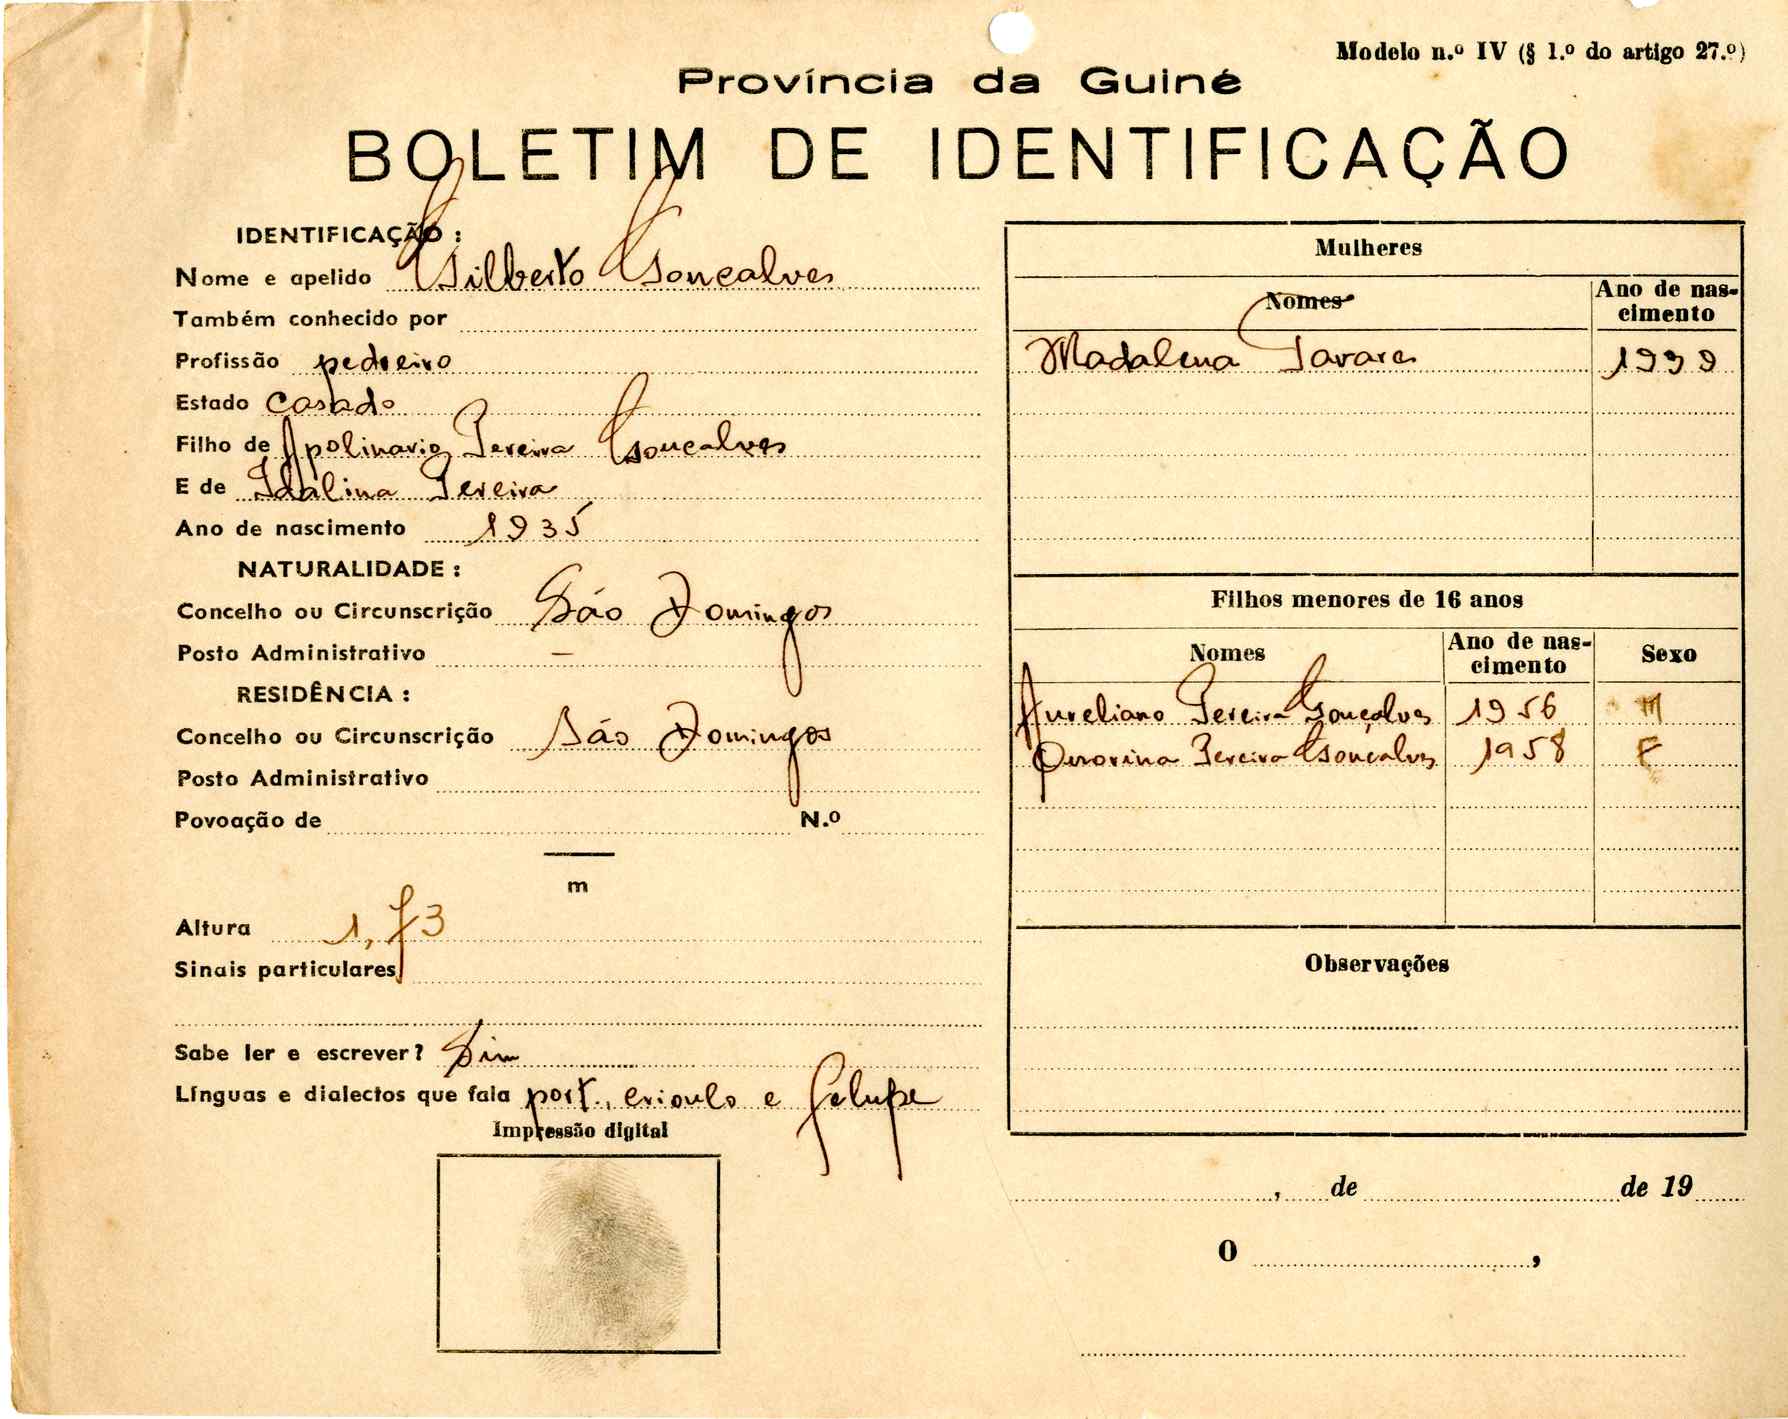 Modelo n.º IV (§ 1.º do artigo 27.º)
Província da Guiné
BOLETIM DE IDENTIFICAÇÃO
IDENTIFICAÇÃO :
Nome e apelido Gilberto Gonçalves
Também conhecido por
Profissão pedreiro
Estado casado
Filho de Apolinario Pereira Gonçalves
E de Idalina Pereira
Ano de nascimento 1935
NATURALIDADE :
Concelho ou Circunscrição São Domingos
Posto Administrativo –
RESIDÊNCIA :
Concelho ou Circunscrição São Domingos
Posto Administrativo
Povoação de N.º
m
Altura 1,73
Sinais particulares
Sabe ler e escrever? Sim
Línguas e dialectos que fala port., crioulo e felupe
Impressão digital
Mulheres
Nomes Ano de nas-
cimento
Madalena Tavares 1939
Filhos menores de 16 anos
Nomes Ano de nas-
cimento Sexo
Aureliano Pereira Gonçalves 1956 M
Pereira Gonçalves 1958 F
Observações
, de de 19
O ,